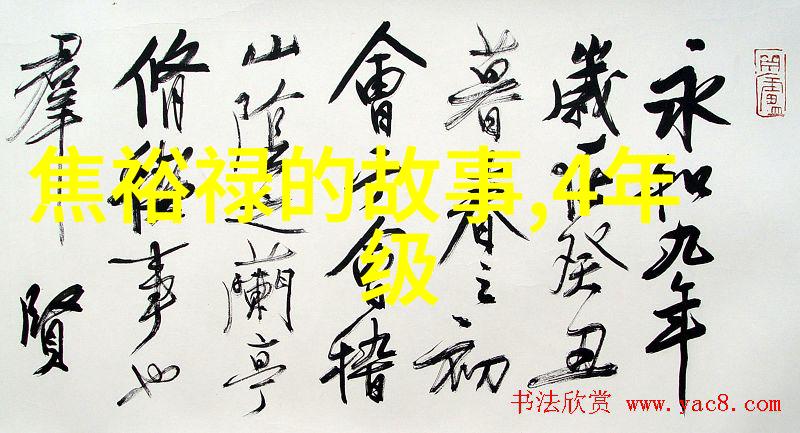 焦裕禄的故事,4年
级
永和九年
歲在癸丑
暮春之初
會于會稽
山陰之蘭亭
脩禊事也
羣賢
书法欣赏 www.yac8.com